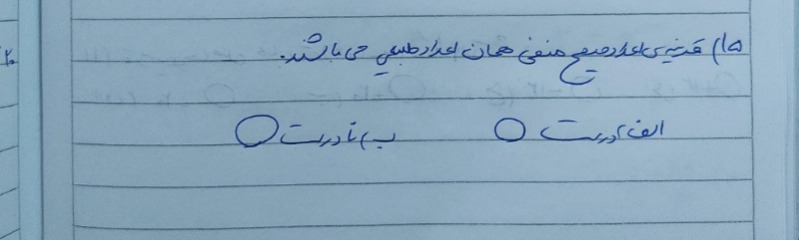 ۱۵) قرینه‌ی اعداد صحیح منفی همان اعداد طبیعی می باشند.
الف) درست ○ ب) نادرست ○